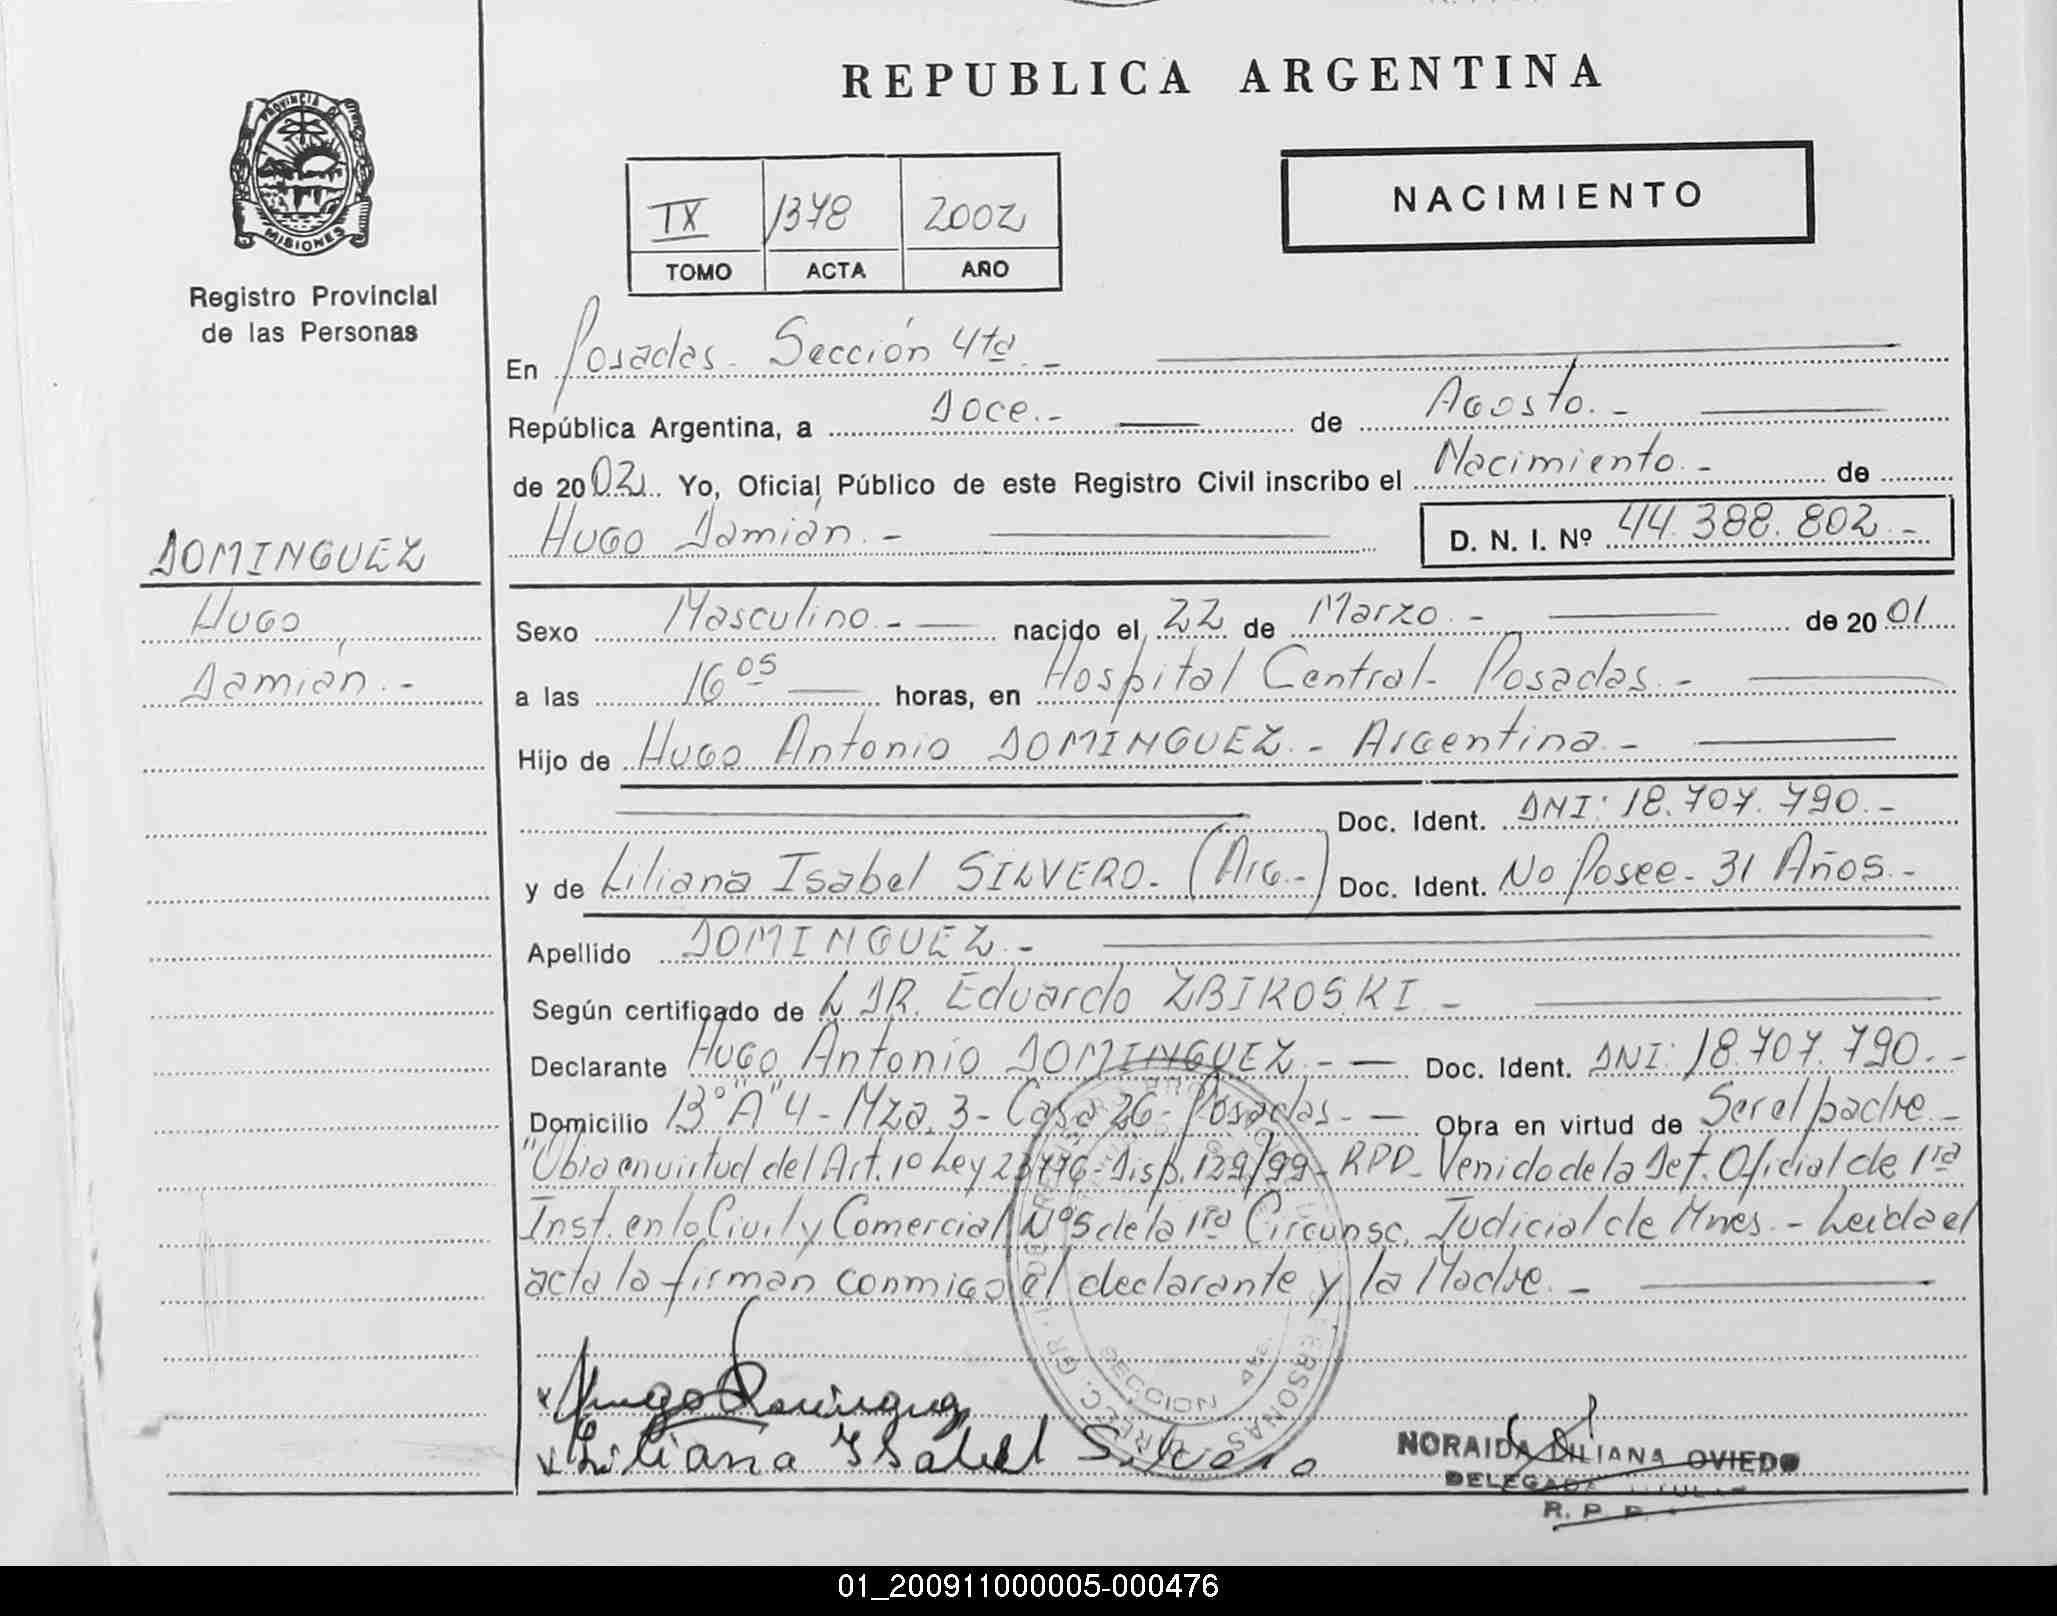 REPUBLICA ARGENTINA
PROVINCIA DE
MISIONES
Registro Provincial
de las Personas
IX 1378 2002
TOMO ACTA AÑO
NACIMIENTO
En Posadas - Sección 4ta. -
República Argentina, a Doce. - de Agosto. -
de 2002. Yo, Oficial Público de este Registro Civil inscribo el Nacimiento. - de
Hugo Damián. - D. N. I. Nº 44.388.802. -
DOMINGUEZ
Hugo
Damián. -
Sexo Masculino. - nacido el 22 de Marzo. - de 2001
a las 16 05 horas, en Hospital Central - Posadas. -
Hijo de Hugo Antonio DOMINGUEZ. - Argentina. -
Doc. Ident. DNI: 18.707.790. -
y de Liliana Isabel SILVERO. (Arg. -) Doc. Ident. No Posee - 31 Años. -
Apellido DOMINGUEZ. -
Según certificado de DR. Eduardo ZBIKOSKI. -
Declarante Hugo Antonio DOMINGUEZ. - Doc. Ident. DNI: 18.707.790. -
Domicilio B° "A" 4 - Mza. 3 - Casa 26 - Posadas. - Obra en virtud de Ser el padre. -
"Obra en virtud del Art. 1º Ley 23776 - Disp. 129/99 - RPD - Venido de la Def. Oficial de 1ra
Inst. en lo Civil y Comercial Nº 5 de la 1ra Circunsc. Judicial de Mnes. - Leida el
acta la firman conmigo el declarante y la Madre. -
x Hugo Dominguez
x Liliana Isabel Silvero
SECCION 4ta
NORAIDA LILIANA OVIEDO
DELEGADA TITULAR
R. P. P.
01_200911000005-000476